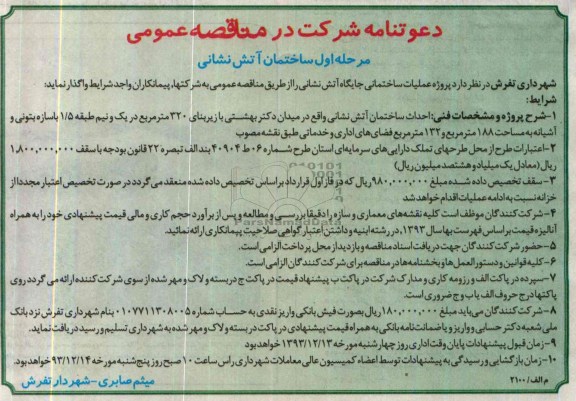 دعوتنامه شرکت در مناقصه عمومی
مرحله اول ساختمان آتش نشانی
شهرداری تفرش در نظر دارد پروژه عملیات ساختمانی جایگاه آتش نشانی را از طریق مناقصه عمومی به شرکتها، پیمانکاران واجد شرایط واگذار نماید:
شرایط:
۱-شرح پروژه و مشخصات فنی: احداث ساختمان آتش نشانی واقع در میدان دکتر بهشتی با زیربنای ۳۲۰ مترمربع در یک و نیم طبقه ۱/۵ با سازه بتونی و
آشیانه به مساحت ۱۸۸ مترمربع و ۱۳۲ مترمربع فضای های اداری و خدماتی طبق نقشه مصوب
۲-اعتبارات طرح از محل طرحهای تملک دارایی های سرمایه ای استان طرح شماره ۰۶ ط ۴۰۹۰۴ بند الف تبصره ۲۲ قانون بودجه با سقف ۱,۸۰۰,۰۰۰,۰۰۰
ریال (معادل یک میلیاد و هشتصد میلیون ریال)
۳-سقف تخصیص داده شده مبلغ ۹۸۰,۰۰۰,۰۰۰ ریال که در فاز اول قرارداد بر اساس تخصیص داده شده منعقد می گردد در صورت تخصیص اعتبار مجدد از
خزانه نسبت به ادامه عملیات اقدام خواهد شد
۴-شرکت کنندگان موظف است کلیه نقشه های معماری و سازه را دقیقا بررسی و مطالعه و پس از برآورد حجم کاری و مالی قیمت پیشنهادی خود را به همراه
آنالیزه قیمت بر اساس فهرست بها سال ۱۳۹۳، در رشته ابنیه و داشتن اعتبار گواهی صلاحیت پیمانکاری ارائه نمائید.
۵-حضور شرکت کنندگان جهت دریافت اسناد مناقصه و بازدید از محل پرداخت الزامی است.
۶-کلیه قوانین و دستورالعمل ها و بخشنامه ها در مناقصه برای شرکت کنندگان الزامی است.
۷-سپرده در پاکت الف و رزومه کاری و مدارک شرکت در پاکت ب پیشنهاد قیمت در پاکت ج دربسته و لاک و مهر شده از سوی شرکت کننده ارائه می گردد روی
پاکتها درج حروف الف یا ب و ج ضروری است.
۸-شرکت کنندگان می باید مبلغ ۱۸۰,۰۰۰,۰۰۰ ریال بصورت فیش بانکی واریز نقدی به حساب شماره ۰۱۰۷۷۱۱۳۰۸۰۰۵ بنام شهرداری تفرش نزد بانک
ملی شعبه دکتر حسابی و واریز و یا ضمانت نامه بانکی به همراه قیمت پیشنهادی در پاکت در بسته و لاک و مهر شده به شهرداری تسلیم و رسید دریافت نماید.
۹-زمان قبول پیشنهادات پایان وقت اداری روز چهار شنبه مورخه ۱۳۹۳/۱۲/۱۳ خواهد بود
۱۰-زمان بازگشایی و رسیدگی به پیشنهادات توسط اعضاء کمیسیون عالی معاملات شهرداری راس ساعت ۱۰ صبح روز پنج شنبه مورخه ۹۳/۱۲/۱۴ خواهد بود.
م الف/۲۱۰۰
میثم صابری-شهردار تفرش